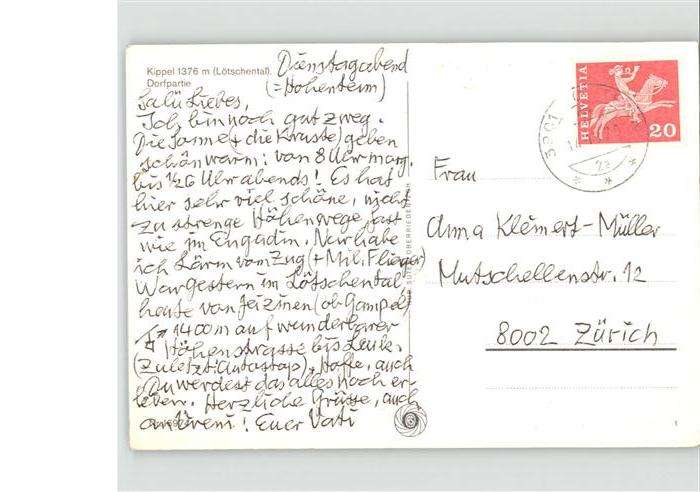 Kippel 1376 m (Lötschental).
Dorfpartie
Dienstagabend
(=Hohentenn)
Salü Liebes,
Ich bin noch gut zweg.
Die Sonne (+ die Kruste) geben
schön warm: von 8 Uhr morg.
bis ½6 Uhr abends! Es hat
hier sehr viel schöne, nicht
zu strenge Höhenwege fast
wie im Engadin. Nur habe
ich Lärm vom Zug (+ Mil. Flieger)
War gestern im Lötschental,
heute von Jeizinen (ob Gampel)
1400 m auf wunderbarer
Höhenstrasse bis Leuk.
(Zuletzt: Autostop), Hoffe, auch
Du werdest das alles noch er-
leben. Herzliche Grüsse, auch
Euer Vati
HELVETIA
20
Frau
Anna Klemert-Müller
Mutschellenstr. 12
8002 Zürich
1